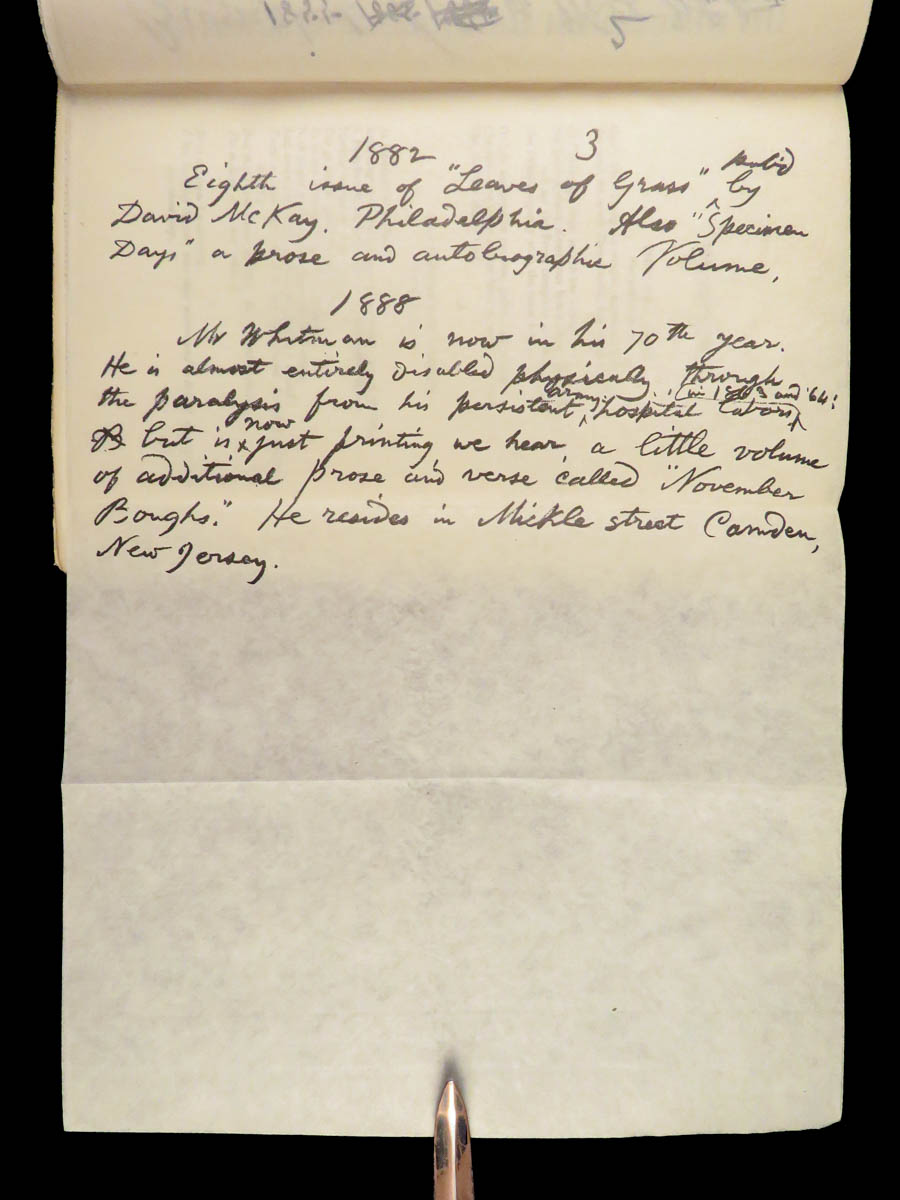 1882 3
pub'd
Eighth issue of "Leaves of Grass" ^ by
David McKay, Philadelphia. Also "Specimen
Days" a prose and autobiographic Volume,
1888
Mr Whitman is now in his 70th year.
He is almost entirely disabled physically through
army (in 1863 and '64:
the paralysis from his persistent ^ hospital labors ^
now
but is ^ just printing we hear, a little volume
of additional prose and verse called "November
Boughs." He resides in Mickle street Camden,
New Jersey.